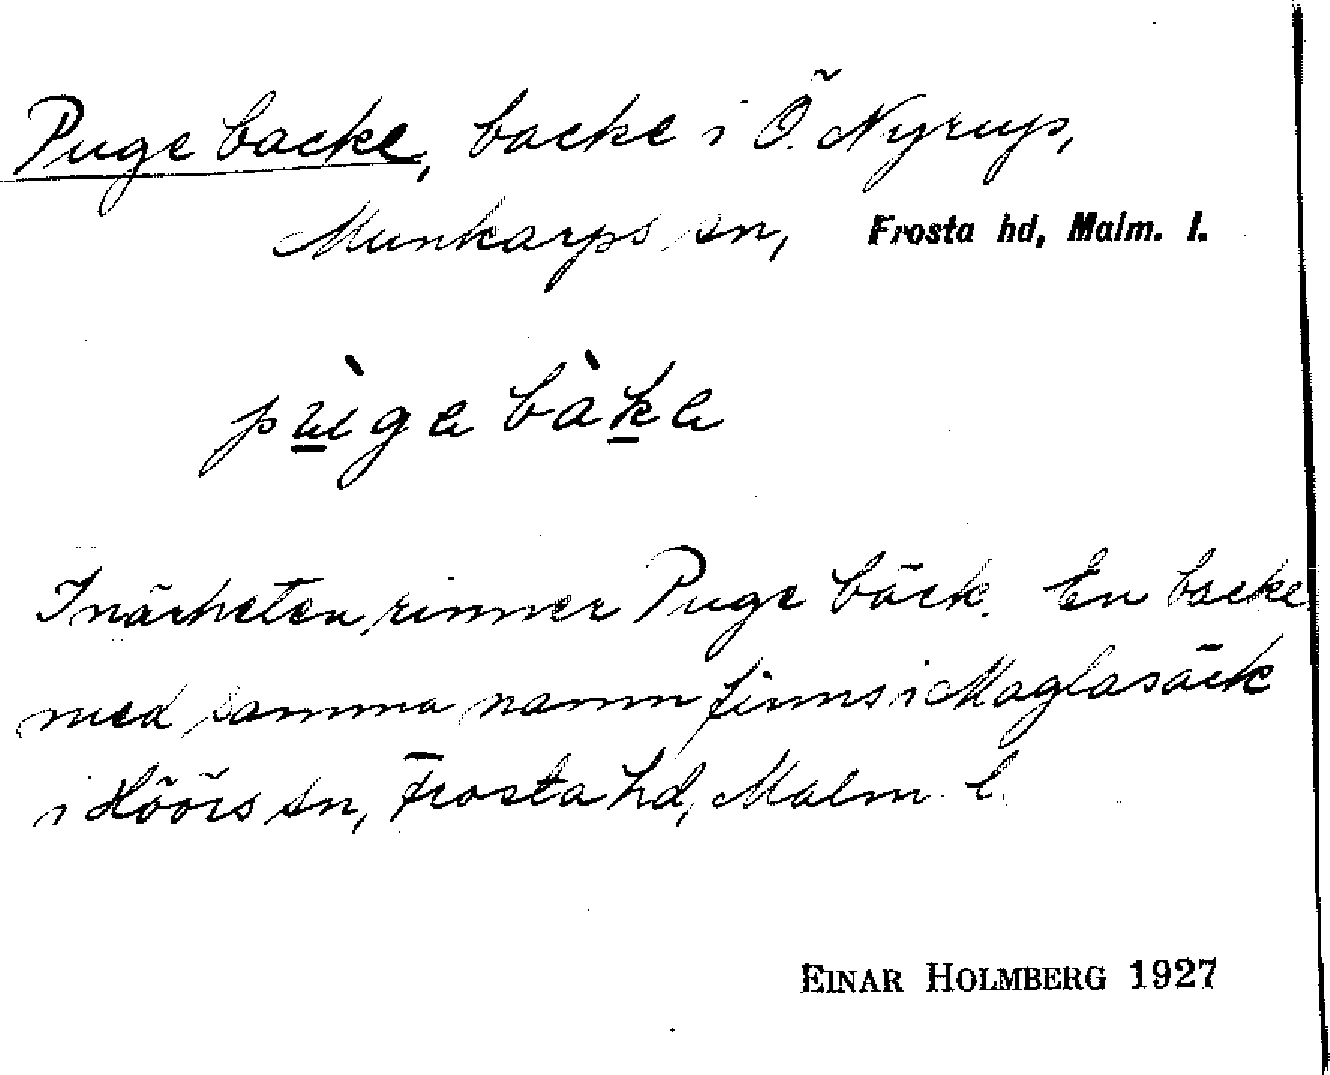 Puge backe, backe i Ö. Nyrup,
Munkarps sn, Frosta hd, Malm. l.
pùge bàke
I närheten rinner Puge bäck. En backe
med samma namn finns i Maglasäck
i Höörs sn, Frosta hd, Malm. l.
EINAR HOLMBERG 1927